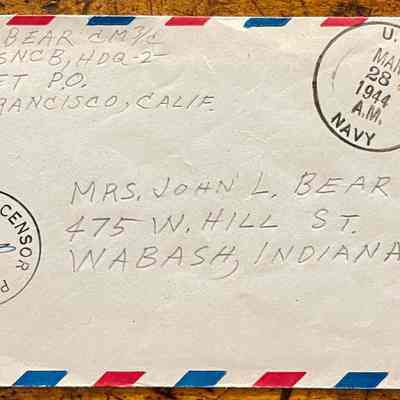 BEAR CM3/C
SNCB, HDQ-2-
ET P.O.
RANCISCO, CALIF.
U.
MAR
28
1944
A.M.
NAVY
MRS. JOHN L. BEAR
475 W. HILL ST.
WABASH, INDIANA
CENSOR